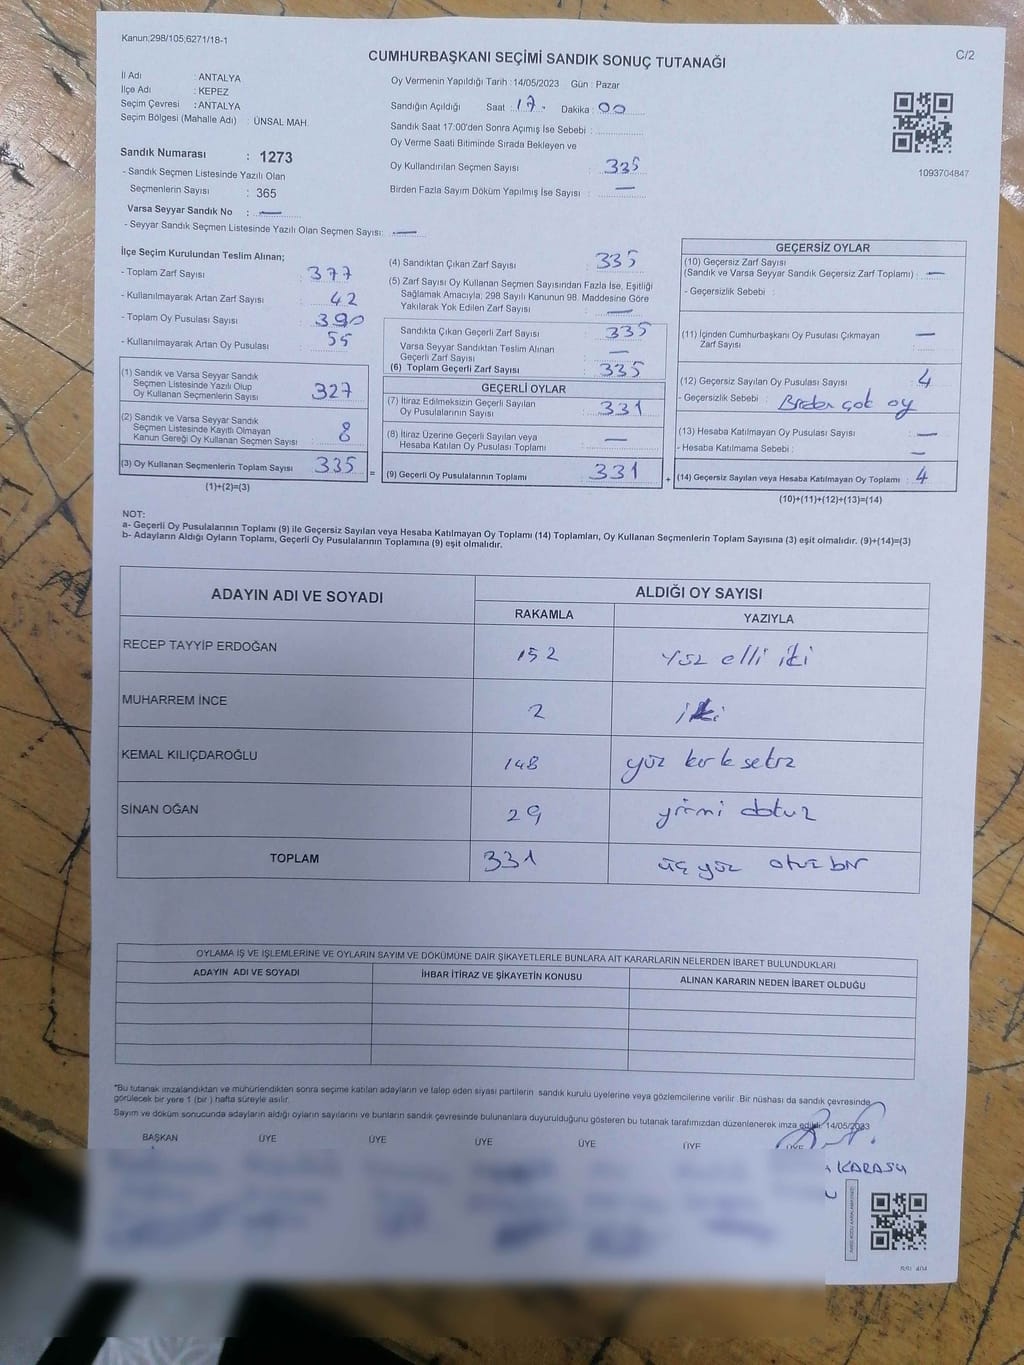 Kanun;298/105;6271/18-1
CUMHURBAŞKANI SEÇİMİ SANDIK SONUÇ TUTANAĞI
C/2
İl Adı : ANTALYA
İlçe Adı : KEPEZ
Seçim Çevresi : ANTALYA
Seçim Bölgesi (Mahalle Adı) : ÜNSAL MAH.
Oy Vermenin Yapıldığı Tarih : 14/05/2023 Gün : Pazar
Sandığın Açıldığı Saat : 17. Dakika : 00
Sandık Saat 17:00'den Sonra Açımış İse Sebebi :
Oy Verme Saati Bitiminde Sırada Bekleyen ve
Oy Kullandırılan Seçmen Sayısı : 335
Birden Fazla Sayım Döküm Yapılmış İse Sayısı : —
1093704847
Sandık Numarası : 1273
- Sandık Seçmen Listesinde Yazılı Olan
Seçmenlerin Sayısı : 365
Varsa Seyyar Sandık No : —
- Seyyar Sandık Seçmen Listesinde Yazılı Olan Seçmen Sayısı: —
İlçe Seçim Kurulundan Teslim Alınan;
- Toplam Zarf Sayısı : 377
- Kullanılmayarak Artan Zarf Sayısı : 42
- Toplam Oy Pusulası Sayısı : 390
- Kullanılmayarak Artan Oy Pusulası : 55
(1) Sandık ve Varsa Seyyar Sandık
Seçmen Listesinde Yazılı Olup
Oy Kullanan Seçmenlerin Sayısı : 327
(2) Sandık ve Varsa Seyyar Sandık
Seçmen Listesinde Kayıtlı Olmayan
Kanun Gereği Oy Kullanan Seçmen Sayısı : 8
(3) Oy Kullanan Seçmenlerin Toplam Sayısı : 335
(1)+(2)=(3)
(4) Sandıktan Çıkan Zarf Sayısı : 335
(5) Zarf Sayısı Oy Kullanan Seçmen Sayısından Fazla İse, Eşitliği
Sağlamak Amacıyla; 298 Sayılı Kanunun 98. Maddesine Göre
Yakılarak Yok Edilen Zarf Sayısı : —
Sandıkta Çıkan Geçerli Zarf Sayısı : 335
Varsa Seyyar Sandıktan Teslim Alınan
Geçerli Zarf Sayısı : —
(6) Toplam Geçerli Zarf Sayısı : 335
GEÇERLİ OYLAR
(7) İtiraz Edilmeksizin Geçerli Sayılan
Oy Pusulalarının Sayısı : 331
(8) İtiraz Üzerine Geçerli Sayılan veya
Hesaba Katılan Oy Pusulası Toplamı : —
= (9) Geçerli Oy Pusulalarının Toplamı : 331 +
GEÇERSİZ OYLAR
(10) Geçersiz Zarf Sayısı
(Sandık ve Varsa Seyyar Sandık Geçersiz Zarf Toplamı) : —
- Geçersizlik Sebebi :
(11) İçinden Cumhurbaşkanı Oy Pusulası Çıkmayan
Zarf Sayısı : —
(12) Geçersiz Sayılan Oy Pusulası Sayısı : 4
- Geçersizlik Sebebi : Birden çok oy
(13) Hesaba Katılmayan Oy Pusulası Sayısı : —
- Hesaba Katılmama Sebebi : —
(14) Geçersiz Sayılan veya Hesaba Katılmayan Oy Toplamı : 4
(10)+(11)+(12)+(13)=(14)
NOT:
a- Geçerli Oy Pusulalarının Toplamı (9) ile Geçersiz Sayılan veya Hesaba Katılmayan Oy Toplamı (14) Toplamları, Oy Kullanan Seçmenlerin Toplam Sayısına (3) eşit olmalıdır. (9)+(14)=(3)
b- Adayların Aldığı Oyların Toplamı, Geçerli Oy Pusulalarının Toplamına (9) eşit olmalıdır.
ADAYIN ADI VE SOYADI ALDIĞI OY SAYISI
RAKAMLA YAZIYLA
RECEP TAYYİP ERDOĞAN 152 yüz elli iki
MUHARREM İNCE 2 iki
KEMAL KILIÇDAROĞLU 148 yüz kırk sekiz
SİNAN OĞAN 29 yirmi dokuz
TOPLAM 331 üç yüz otuz bir
OYLAMA İŞ VE İŞLEMLERİNE VE OYLARIN SAYIM VE DÖKÜMÜNE DAİR ŞİKAYETLERLE BUNLARA AİT KARARLARIN NELERDEN İBARET BULUNDUKLARI
ADAYIN ADI VE SOYADI İHBAR İTİRAZ VE ŞİKAYETİN KONUSU ALINAN KARARIN NEDEN İBARET OLDUĞU
*Bu tutanak imzalandıktan ve mühürlendikten sonra seçime katılan adayların ve talep eden siyasi partilerin sandık kurulu üyelerine veya gözlemcilerine verilir. Bir nüshası da sandık çevresinde
görülecek bir yere 1 (bir) hafta süreyle asılır.
Sayım ve döküm sonucunda adayların aldığı oyların sayılarını ve bunların sandık çevresinde bulunanlara duyurulduğunu gösteren bu tutanak tarafımızdan düzenlenerek imza edildi. 14/05/2023
BAŞKAN ÜYE ÜYE ÜYE ÜYE ÜYE ÜYE
KARASU